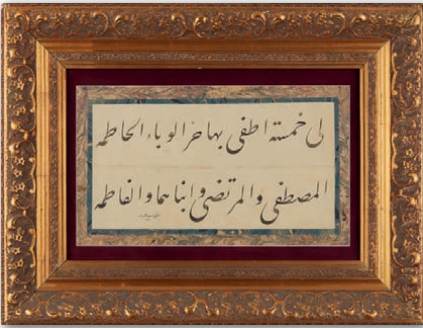 لى خمسة اطفى بها حر الوباء الحاطمه
المصطفى والمرتضى وابناهما والفاطمه